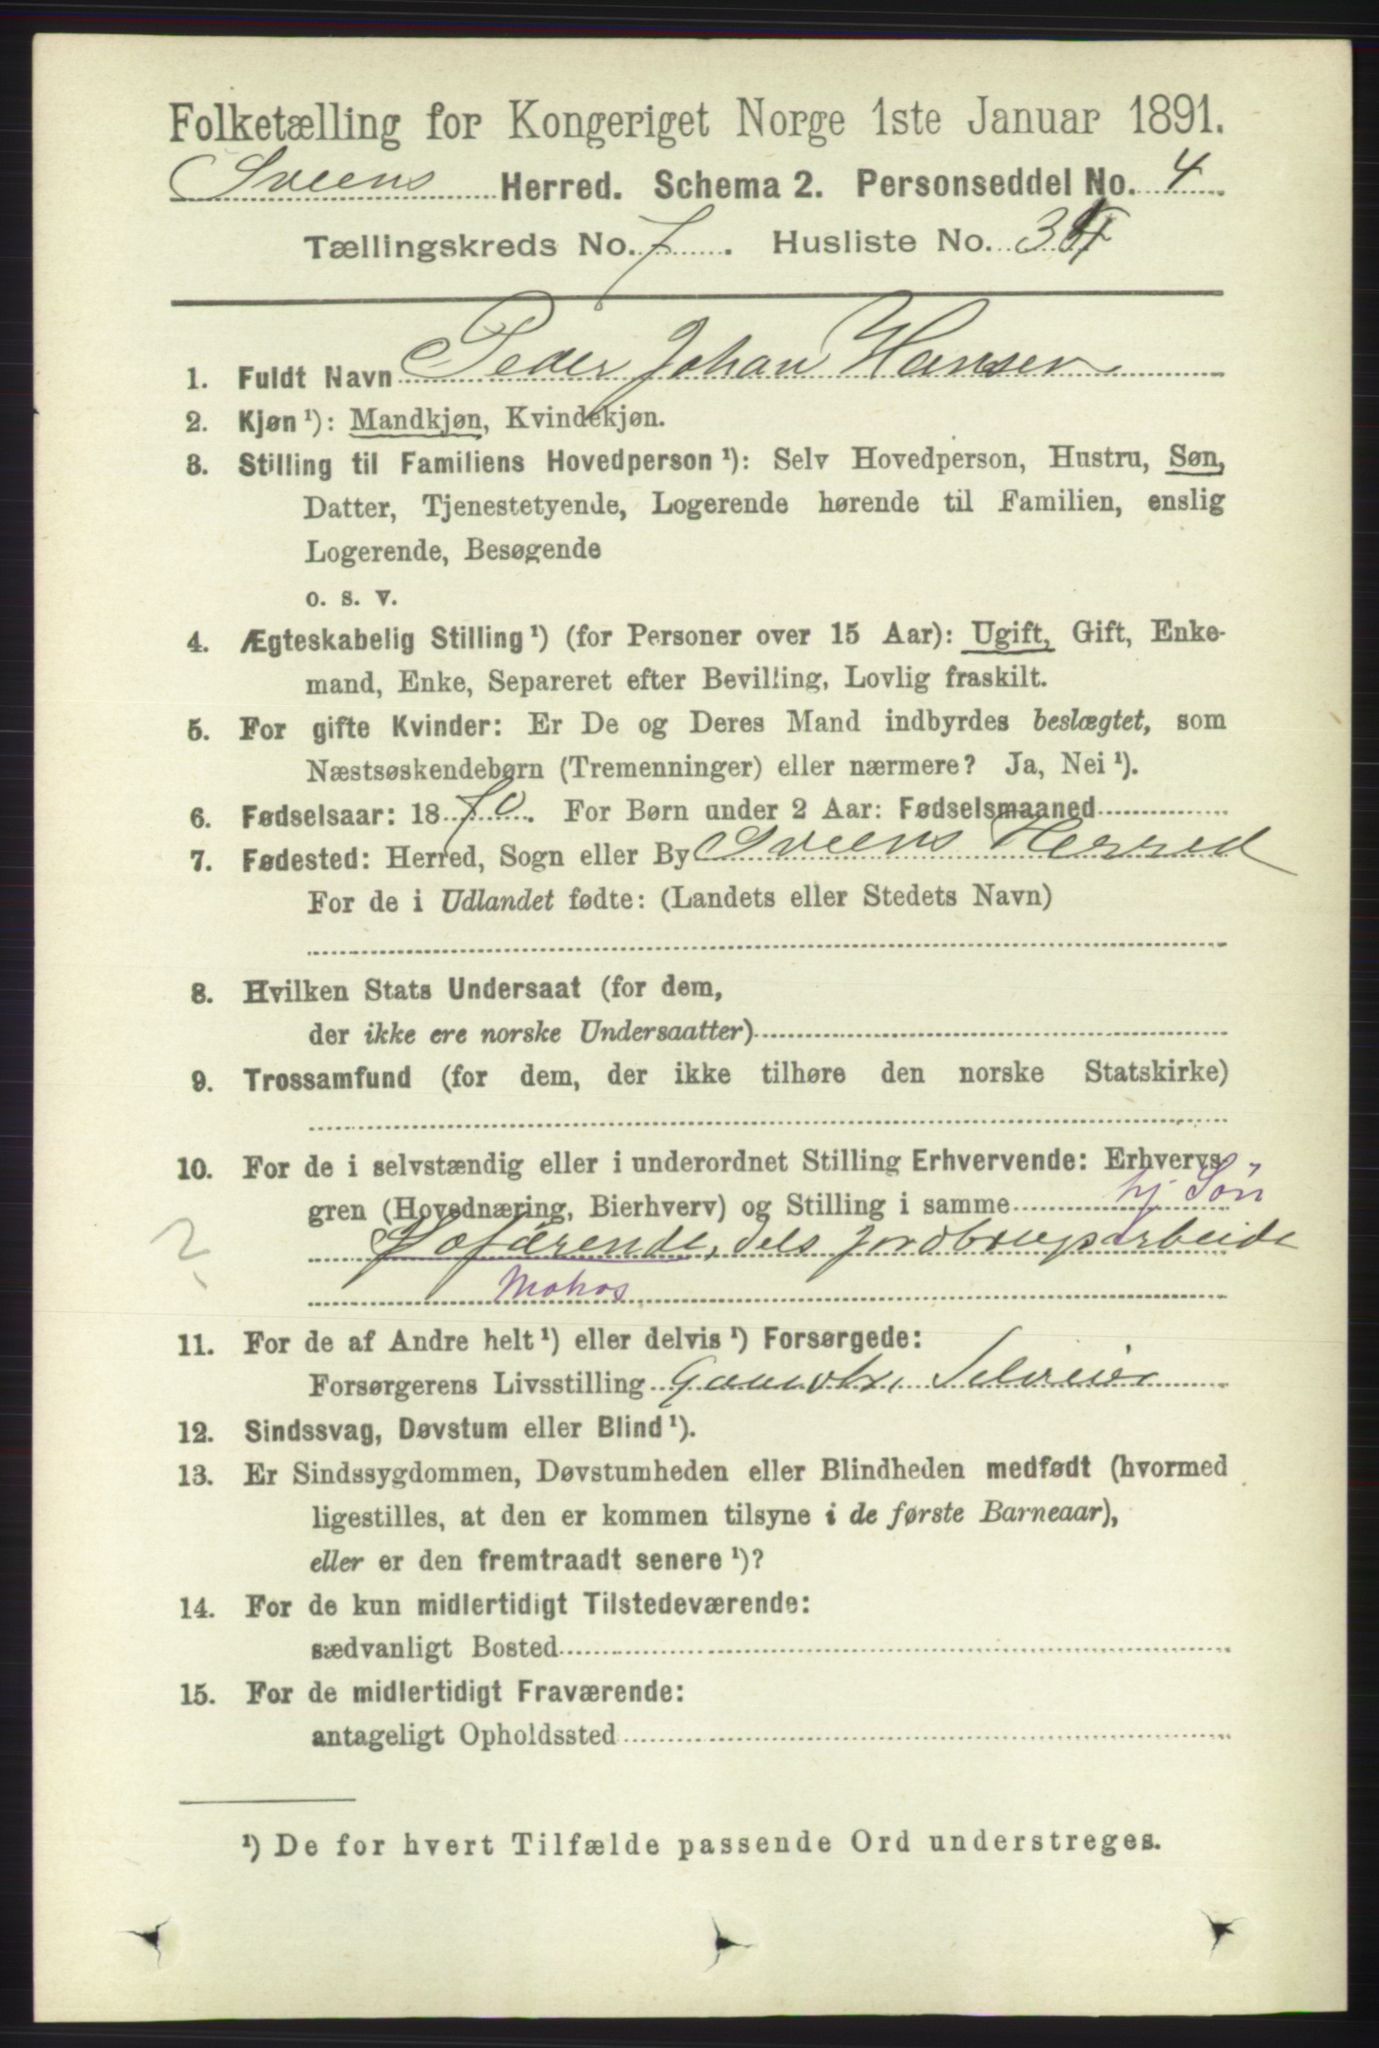 Folketælling for Kongeriget Norge 1ste Januar 1891.
Sveens Herred. Schema 2. Personseddel No. 4
Tællingskreds No. 7. Husliste No. 3
1. Fuldt Navn Peder Johan Hansen
2. Kjøn¹): Mandkjøn, Kvindekjøn.
3. Stilling til Familiens Hovedperson¹): Selv Hovedperson, Hustru, Søn,
Datter, Tjenestetyende, Logerende hørende til Familien, enslig
Logerende, Besøgende
o. s. v.
4. Ægteskabelig Stilling¹) (for Personer over 15 Aar): Ugift, Gift, Enke-
mand, Enke, Separeret efter Bevilling, Lovlig fraskilt.
5. For gifte Kvinder: Er De og Deres Mand indbyrdes beslægtet, som
Næstsøskendebørn (Tremenninger) eller nærmere? Ja, Nei¹).
6. Fødselsaar: 1870. For Børn under 2 Aar: Fødselsmaaned
7. Fødested: Herred, Sogn eller By Sveens Herred
For de i Udlandet fødte: (Landets eller Stedets Navn)
8. Hvilken Stats Undersaat (for dem,
der ikke ere norske Undersaatter)
9. Trossamfund (for dem, der ikke tilhøre den norske Statskirke)
10. For de i selvstændig eller i underordnet Stilling Erhvervende: Erhvervs-
gren (Hovednæring, Bierhverv) og Stilling i samme hj Søn
? Søfarende, dels Jordbrugsarbeide
Matros
11. For de af Andre helt¹) eller delvis¹) Forsørgede:
Forsørgerens Livsstilling Gaardbr. Selveier
12. Sindssvag, Døvstum eller Blind¹).
13. Er Sindssygdommen, Døvstumheden eller Blindheden medfødt (hvormed
ligestilles, at den er kommen tilsyne i de første Barneaar),
eller er den fremtraadt senere¹)?
14. For de kun midlertidigt Tilstedeværende:
sædvanligt Bosted
15. For de midlertidigt Fraværende:
antageligt Opholdssted
¹) De for hvert Tilfælde passende Ord understreges.